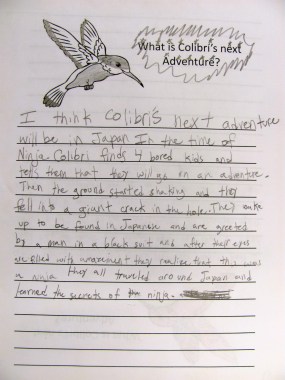 What is Colibri's next
Adventure?
I think Colibri's next adventure
will be in Japan In the time of
Ninja Colibri finds 4 bored kids and
tells them that they will go on an adventure.
Then the ground started shaking and they
fell into a giant crack in the hole. They wake
up to be found in Japanese and are greeted
by a man in a black suit and after their eyes
are filled with amazement they realize that this was
a ninja they all traveled around Japan and
learned the secrets of the ninja.